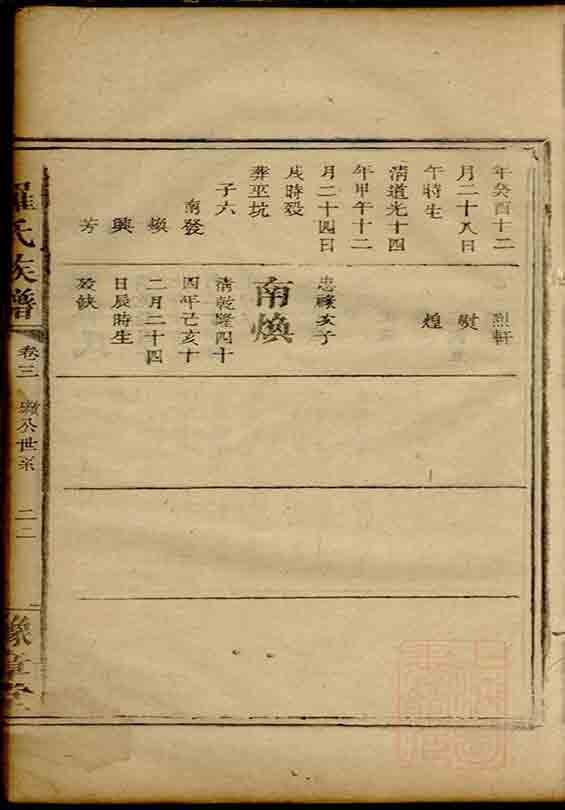 年癸酉十二
月二十八日
午時生
清道光十四
年甲午十二
月二十四日
戌時歿
葬巫坑
子六
南發
焌
興
芳
烈軒
熨
煌
忠祿次子
南煥
清乾隆四十
四年己亥十
二月二十四
日辰時生
歿缺
羅氏族譜
卷三
公世系
二二
豫章堂